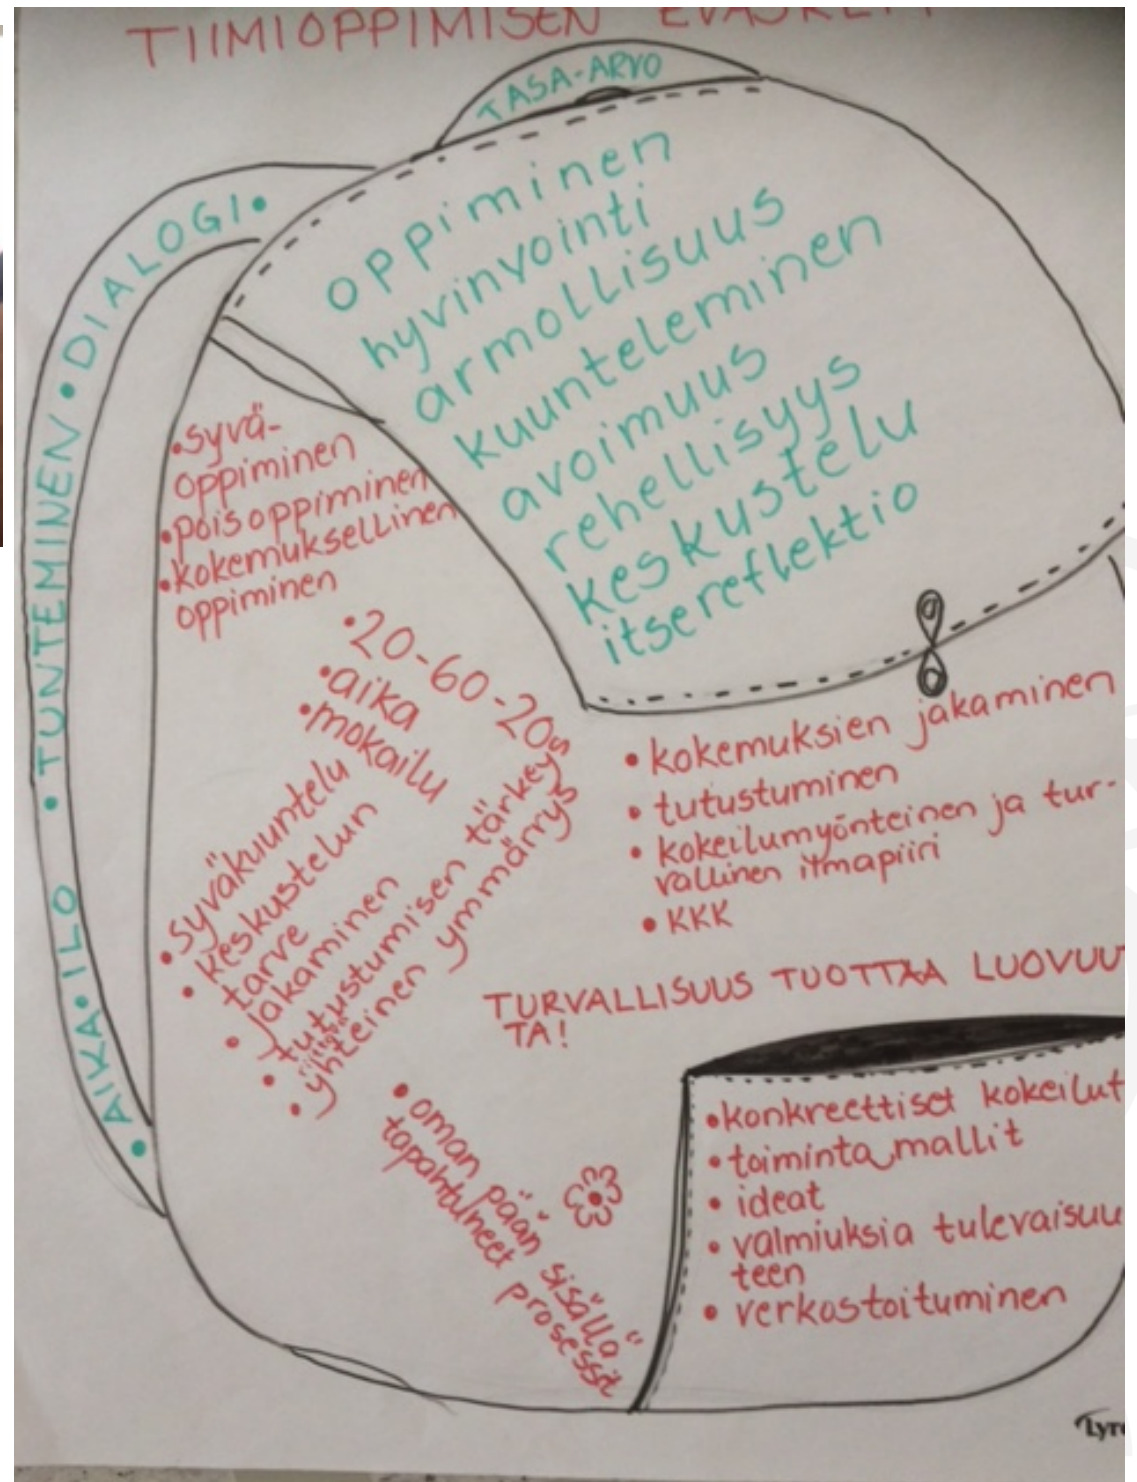 TIIMIOPPIMISEN
TASA-ARVO
• AIKA • ILO • TUNTEMINEN • DIALOGI •
oppiminen
hyvinvointi
armollisuus
kuunteleminen
avoimuus
rehellisyys
keskustelu
itsereflektio
• syvä-
oppiminen
• poisoppiminen
• kokemuksellinen
oppiminen
• 20-60-20
• aika
• mokailu
• syväkuuntelu
• keskustelun
tarve
• jakaminen
• tutustumisen tärkeys
• yhteinen ymmärrys
• kokemuksien jakaminen
• tutustuminen
• kokeilumyönteinen ja tur-
vallinen ilmapiiri
• KKK
TURVALLISUUS TUOTTAA LUOVUU
TA!
• oman pään sisällä
tapahtuneet prosessit
• konkreettiset kokeilut
• toimintamallit
• ideat
• valmiuksia tulevaisuu
teen
• verkostoituminen
Lyre